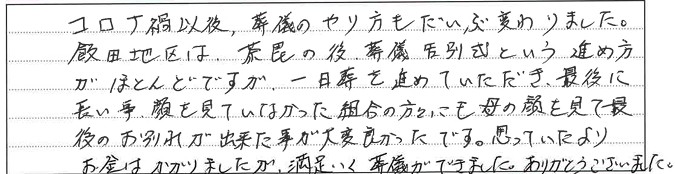 コロナ禍以後、葬儀のやり方もだいぶ変わりました。
飯田地区は、荼毘の後 葬儀告別式という進め方
がほとんどですが、一日葬を進めていただき、最後に
長い事、顔を見ていなかった組合の方にも母の顔を見て最
後のお別れが出来た事が大変良かったです。思っていたより
お金はかかりましたが、満足いく葬儀ができました。ありがとうございました。